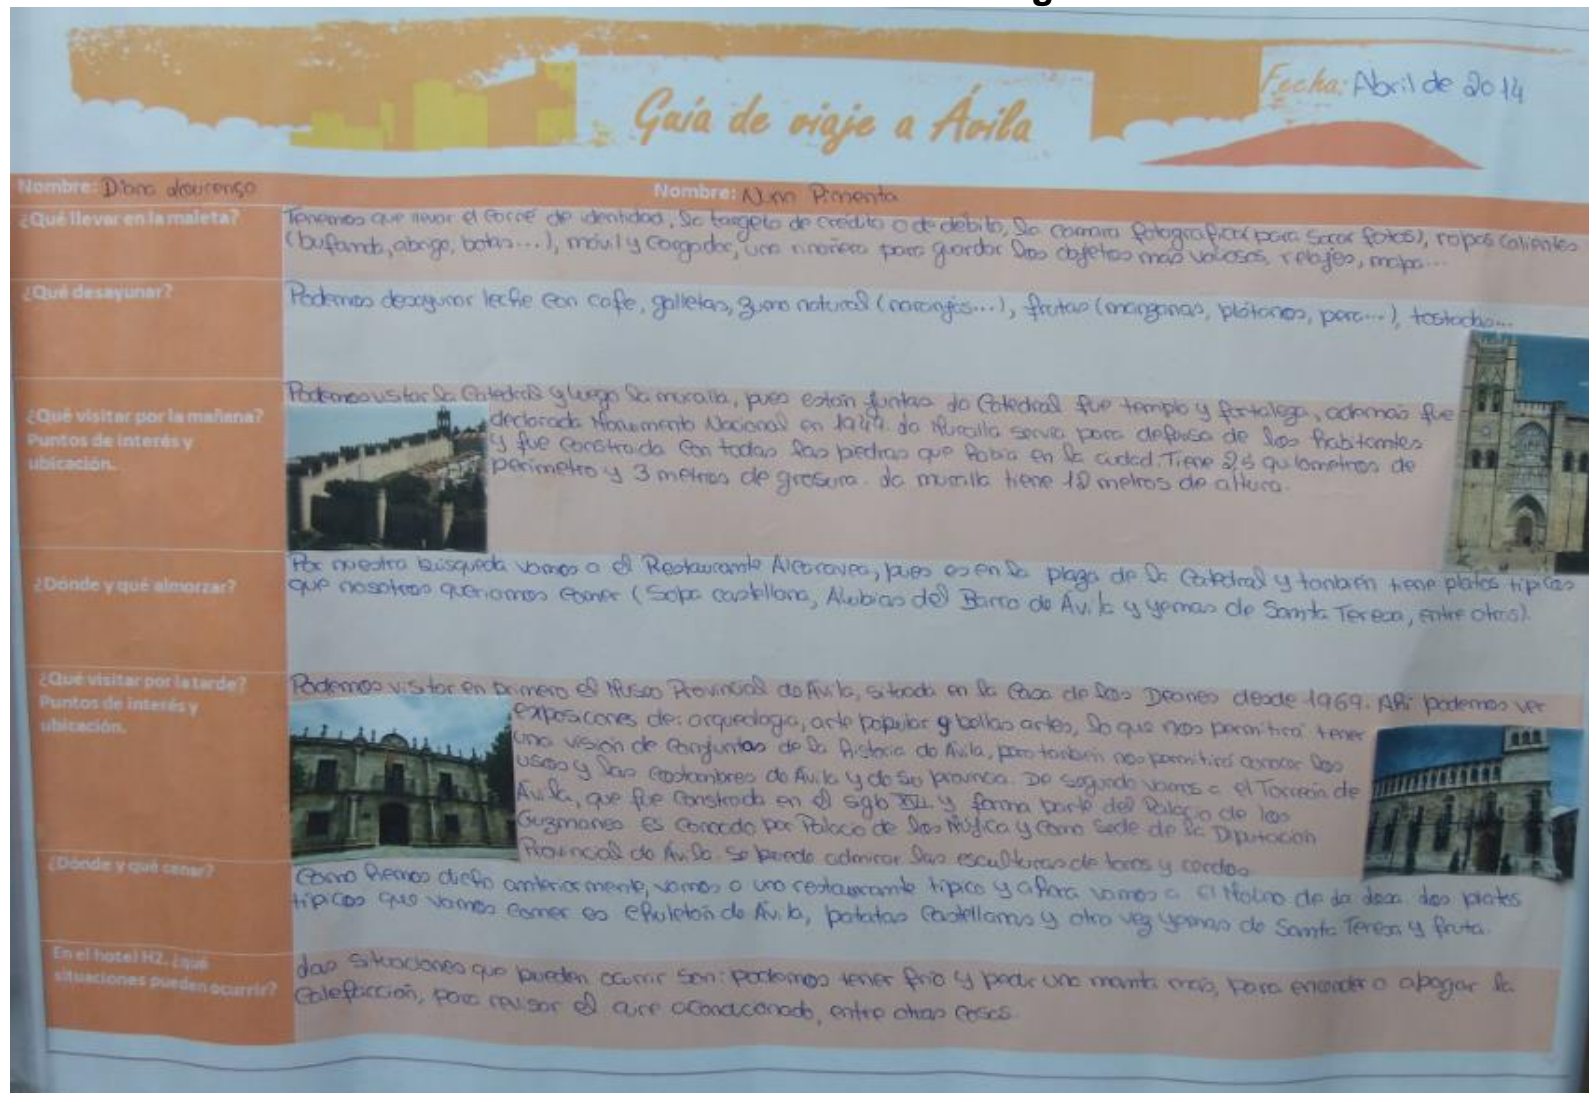 Guía de viaje a Ávila
Fecha: Abril de 2014
Nombre: Diana Lourenço
Nombre: Nuno Pimenta
¿Qué llevar en la maleta?
Tenemos que llevar el carné de identidad, la targeta de crédito o de débito, la camara fotografica (para sacar fotos), ropas calientes
(bufanda, abrigo, botas...), móvil y cargador, una rinoñera para guardar los objetos más valiosos, relojes, mapa...
¿Qué desayunar?
Podemos desayunar leche con cafe, galletas, zumo natural (naranjas...), frutas (manzanas, plátanos, pera...), tostadas...
¿Qué visitar por la mañana?
Puntos de interés y
ubicación.
Podemos visitar la Catedral y luego la muralla, pues están juntas. La Catedral fue templo y fortaleza, además fue
declarada Monumento Nacional en La Muralla servia para defensa de los habitantes
y fue construida con todas las piedras que habia en la ciudad. Tiene 2,5 quilometros de
perimetro y 3 metros de grosura. La muralla tiene 12 metros de altura.
¿Dónde y qué almorzar?
Por nuestra búsqueda vamos a el Restaurante Alcaravea, pues es en la plaza de la Catedral y también tiene platos típicos
que nosotros queriamos comer (Sopa castellana, Alubias del Barco de Ávila y yemas de Santa Teresa, entre otros).
¿Qué visitar por la tarde?
Puntos de interés y
ubicación.
Podemos visitar en primero el Museo Provincial de Ávila, situada en la Casa de los Deanes desde 1969. Ahí podemos ver
exposiciones de: arqueologia, arte popular y bellas artes, lo que nos permitirá tener
una visión de conjuntas de la historia de Ávila, pero también nos permitirá conocer los
usos y las costumbres de Ávila y de su provincia. De segundo vamos a el Torreón de
Ávila, que fue construida en el siglo XVI y forma parte del Palacio de los
Guzmanes. Es conocido por Palacio de los Mújica y como Sede de la Diputación
Provincial de Ávila. Se puede admirar las esculturas de toros y cerdos.
¿Dónde y qué cenar?
Como hemos dicho anteriormente, vamos a uno restaurante típico y ahora vamos a El Molino de la Losa. Los platos
típicos que vamos comer es chuletón de Ávila, patatas castellanas y otra vez yemas de Santa Teresa y fruta.
En el hotel H2, ¿qué
situaciones pueden ocurrir?
Las situaciones que pueden ocurrir son: podemos tener frío y pedir una manta más, para encender o apagar la
calefacción, para revisar el aire acondicionado, entre otras cosas.